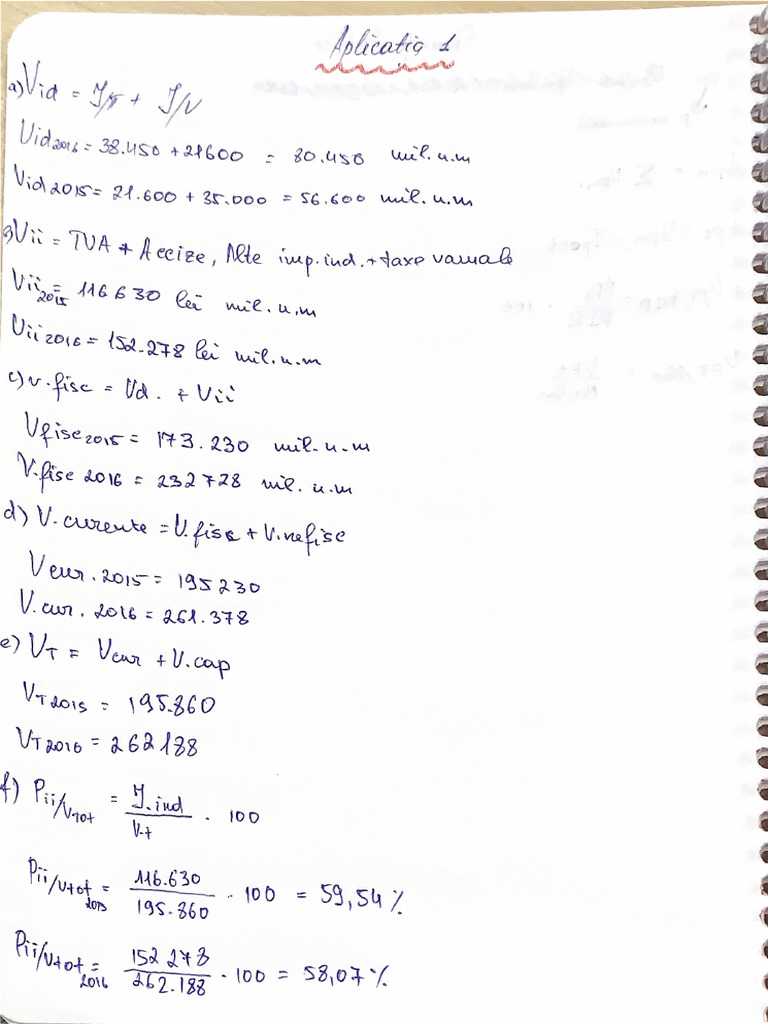 Aplicatia 1
a) Vid = I/π + I/V
Vid2016 = 38.450 + 21600 = 80.450 mil.u.m
Vid2015 = 21.600 + 35.000 = 56.600 mil.u.m
Vii = TVA + Accize, Alte imp.ind. + taxe vamale
Vii 2015 = 116630 lei mil.u.m
Vii 2016 = 152.278 lei mil.u.m
c) v.fisc = Vd. + Vii
Vfisc2015 = 173.230 mil.u.m
V.fisc 2016 = 232728 mil.u.m
d) V.curente = V.fisc + V.nefisc
Vcur.2015 = 195230
V.cur.2016 = 261.378
e) VT = Vcur + V.cap
VT2015 = 195.860
VT2016 = 262188
f) Pii/vtot = I.ind / V.t . 100
Pii/vtot 2015 = 116.630 / 195.860 . 100 = 59,54 %
Pii/vtot 2016 = 152 278 / 262.188 . 100 = 58,07 %